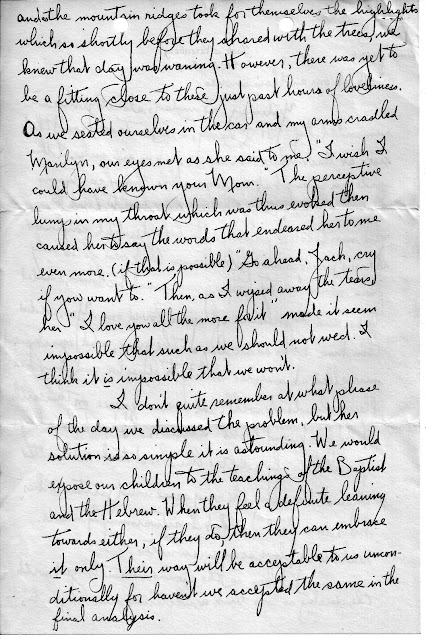 and the mountain ridges took for themselves the highlights
which so shortly before they shared with the trees, we
knew that day was waning. However, there was yet to
be a fitting close to these just past hours of loveliness.
As we seated ourselves in the car and my arms cradled
Marilyn, our eyes met as she said to me, "I wish I
could have known your Mom." The perceptive
lump in my throat which was thus evoked then
caused her to say the words that endeared her to me
even more. (if that is possible) "Go ahead, Jack, cry
if you want to." Then, as I wiped away the tears,
her "I love you all the more for it" made it seem
impossible that such as we should not wed. I
think it is impossible that we won't.
I don't quite remember at what phase
of the day we discussed the problem, but her
solution is so simple it is astounding. We would
expose our children to the teachings of the Baptist
and the Hebrew. When they feel a definite leaning
towards either, if they do, then they can embrace
it only. Their way will be acceptable to us uncon-
ditionally for haven't we accepted the same in the
final analysis.